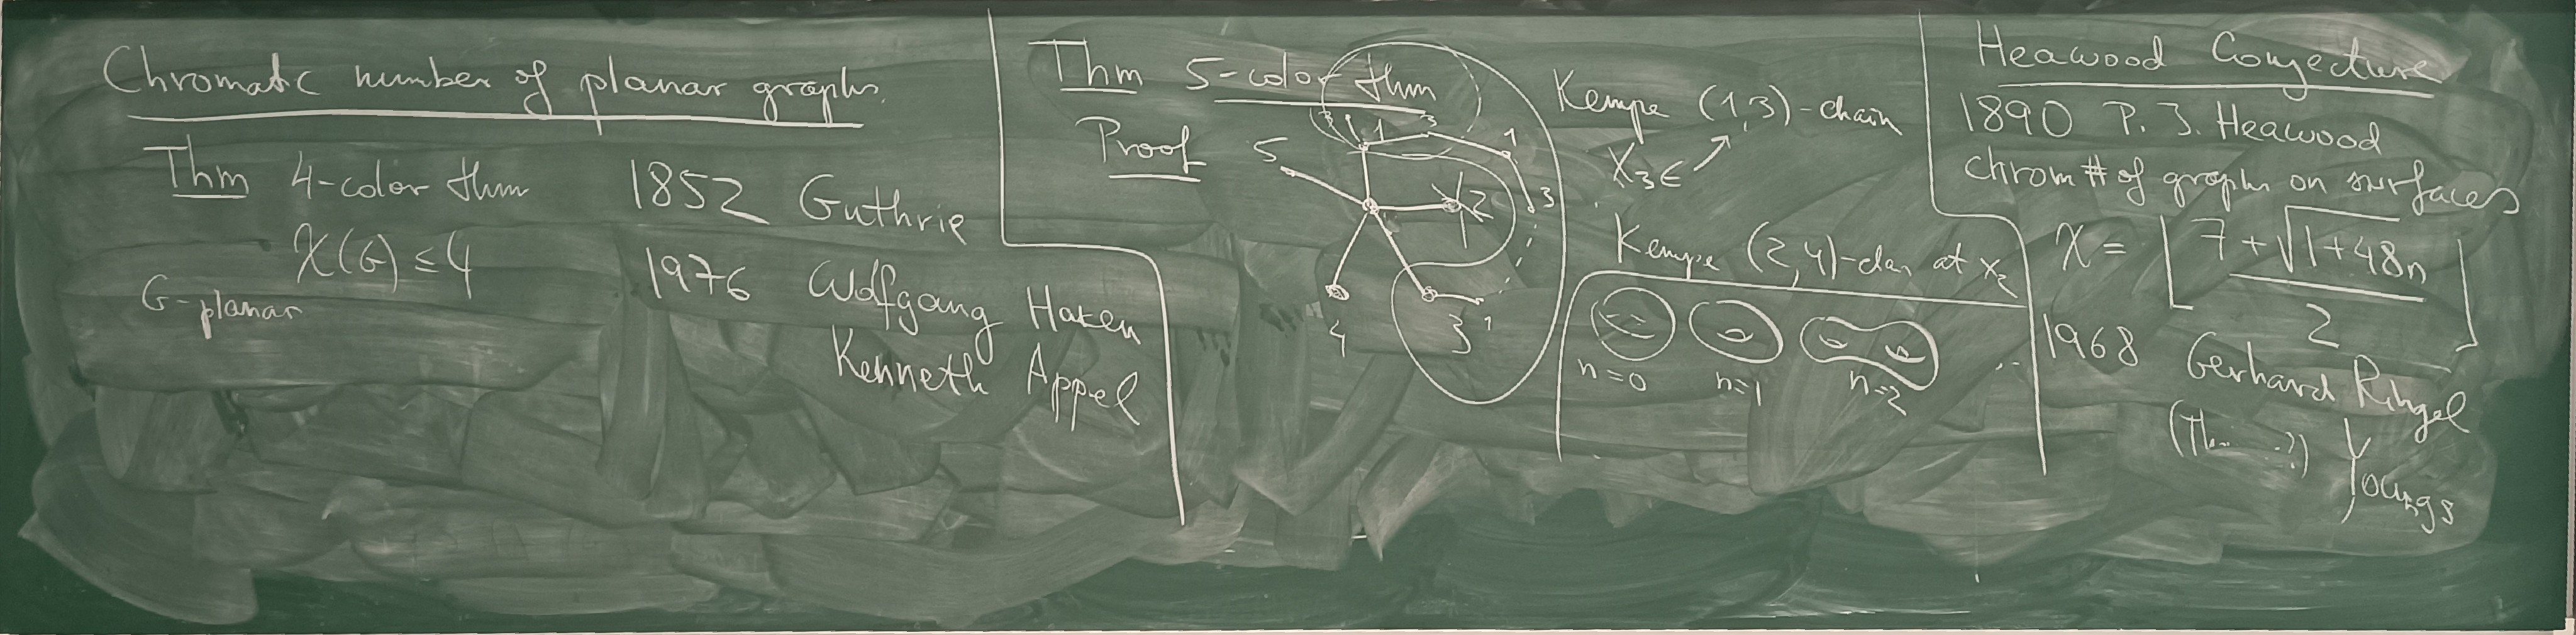 Chromatic number of planar graphs.
Thm 4-color thm 1852 Guthrie
χ(G) ≤ 4
G-planar
1976 Wolfgang Haken
Kenneth Appel
Thm 5-color thm
Proof
5
1
3
1
3
2
4
3
1
Kempe (1,3)-chain
X₃∈
Kempe (2,4)-chan at x₂
n=0 n=1 n=2
Heawood Conjecture
1890 P. J. Heawood
chrom # of graphs on surfaces
χ = ⌊(7+√(1+48n))/2⌋
1968 Gerhard Ringel
Youngs